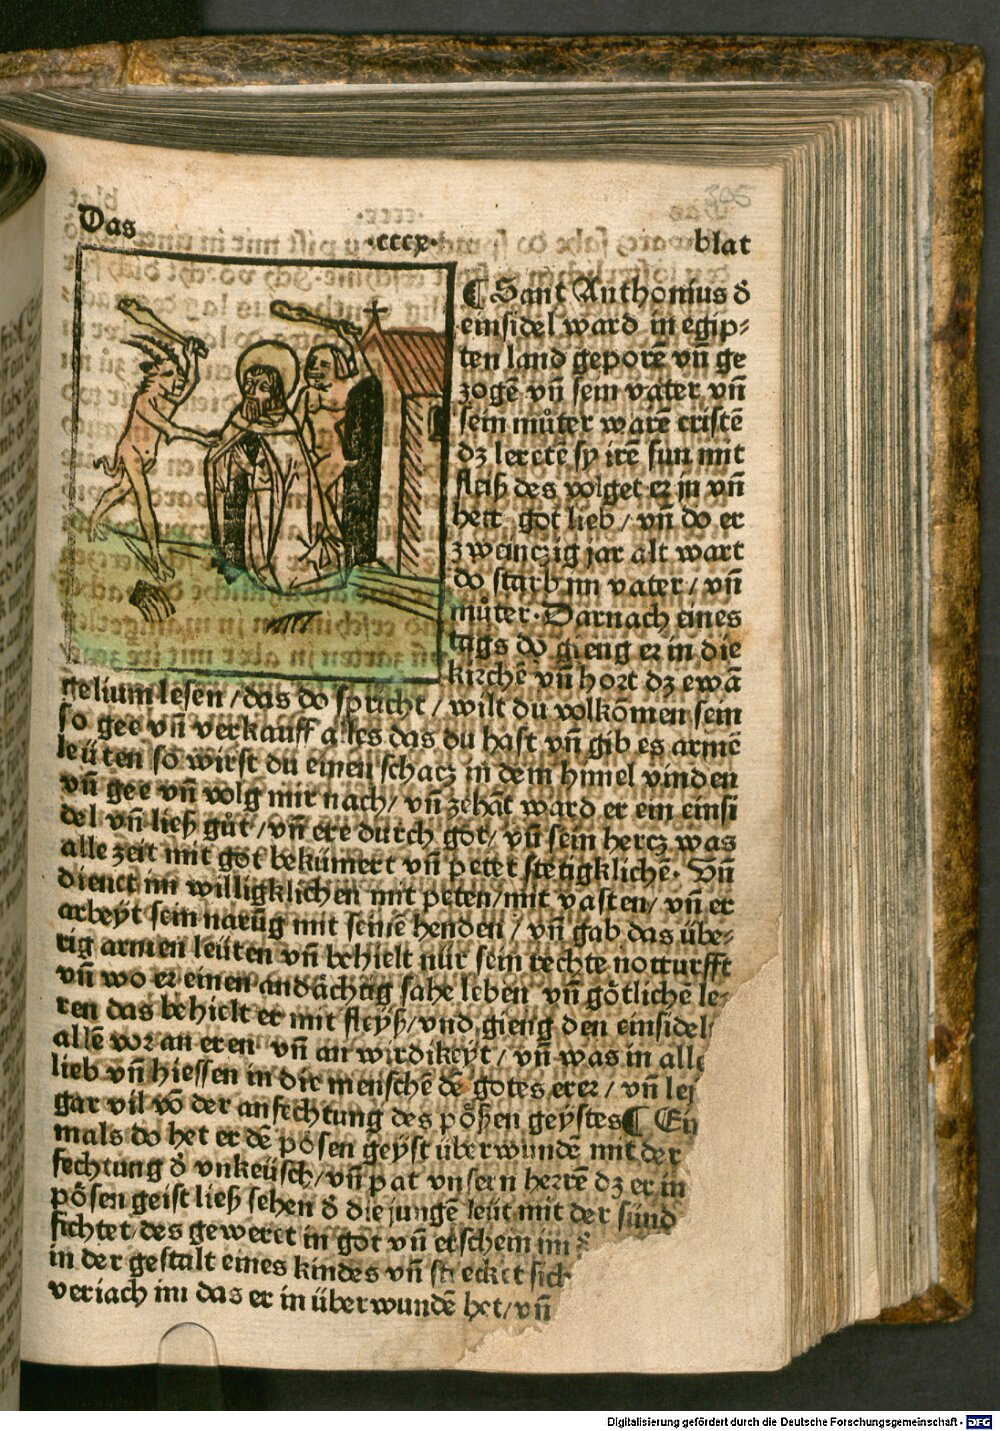 Das .ccccx. blat
¶ Sant Anthonius d̕
einsidel ward in egip⸗
ten land geporē vn̄ ge
zogē vn̄ sein vater vn̄
sein můter warē cristē
dz leretē sy irē sun mit
fleiß des volget er in vn̄
hett got lieb / vn̄ do er
zweinczig jar alt wart
do starb im vater / vn̄
můter. Darnach eines
tags do gieng er in die
kirchē vn̄ hort dz ewā
gelium lesen / das do spricht / wilt du volkōmen sein
so gee vn̄ verkauff alles das du hast vn̄ gib es armē
leüten so wirst du einen schacz in dem himel vinden
vn̄ gee vn̄ volg mir nach / vn̄ zehāt ward er ein einsi
del vn̄ ließ gůt / vn̄ ere durch got / vn̄ sein hercz was
alle zeit mit got bekümert vn̄ petet stetigklichē. Vn̄
dienet im willigklichen mit peten / mit vasten / vn̄ er
arbeyt sein narūg mit seinē henden / vn̄ gab das übe⸗
rig armen leüten vn̄ behielt nür sein rechte notturfft
vn̄ wo er einen andächtig sahe leben vn̄ götlichē le⸗
ren das behielt er mit fleyß / vnd gieng den einsidel
allē vor an eren vn̄ an wirdikeyt / vn̄ was in alle
lieb vn̄ hiessen in die menschē dē gotes erer / vn̄
gar vil vō der anfechtung des pößen geystes ¶
mals do het er dē pösen geyst überwundē mit der
fechtung d̕ vnkeüsch / vn̄ pat vnsern herrē dz er im
pösen geist ließ sehen d̕ die jungē leüt mit der sünd
fichtet / des geweret in got vn̄ erschein im
in der gestalt eines kindes vn̄ strecket sich
veriach im das er in überwundē het / vn̄
Digitalisierung gefördert durch die Deutsche Forschungsgemeinschaft - DFG